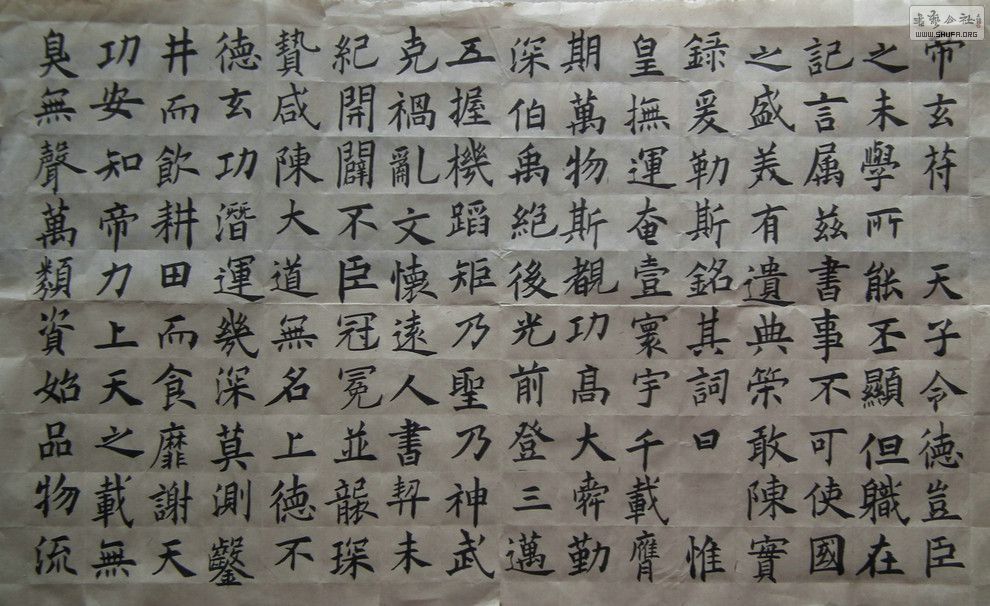 帝玄苻 天子令德豈臣
之未學所能丕顯但職在
記言属兹書事不可使國
之盛美有遺典策敢陳實
録爰勒斯銘其詞曰 惟
皇撫運奄壹寰宇千載膺
期萬物斯覩功高大舜勤
深伯禹絕後光前登三邁
五握機蹈矩乃聖乃神武
克禍亂文懷遠人書契未
紀開闢不臣冠冕並襲琛
贄咸陳大道無名上德不
德玄功潛運幾深莫測鑿
井而飲耕田而食靡謝天
功安知帝力上天之載無
臭無聲萬類資始品物流
書藝公社
WWW.SHUFA.ORG